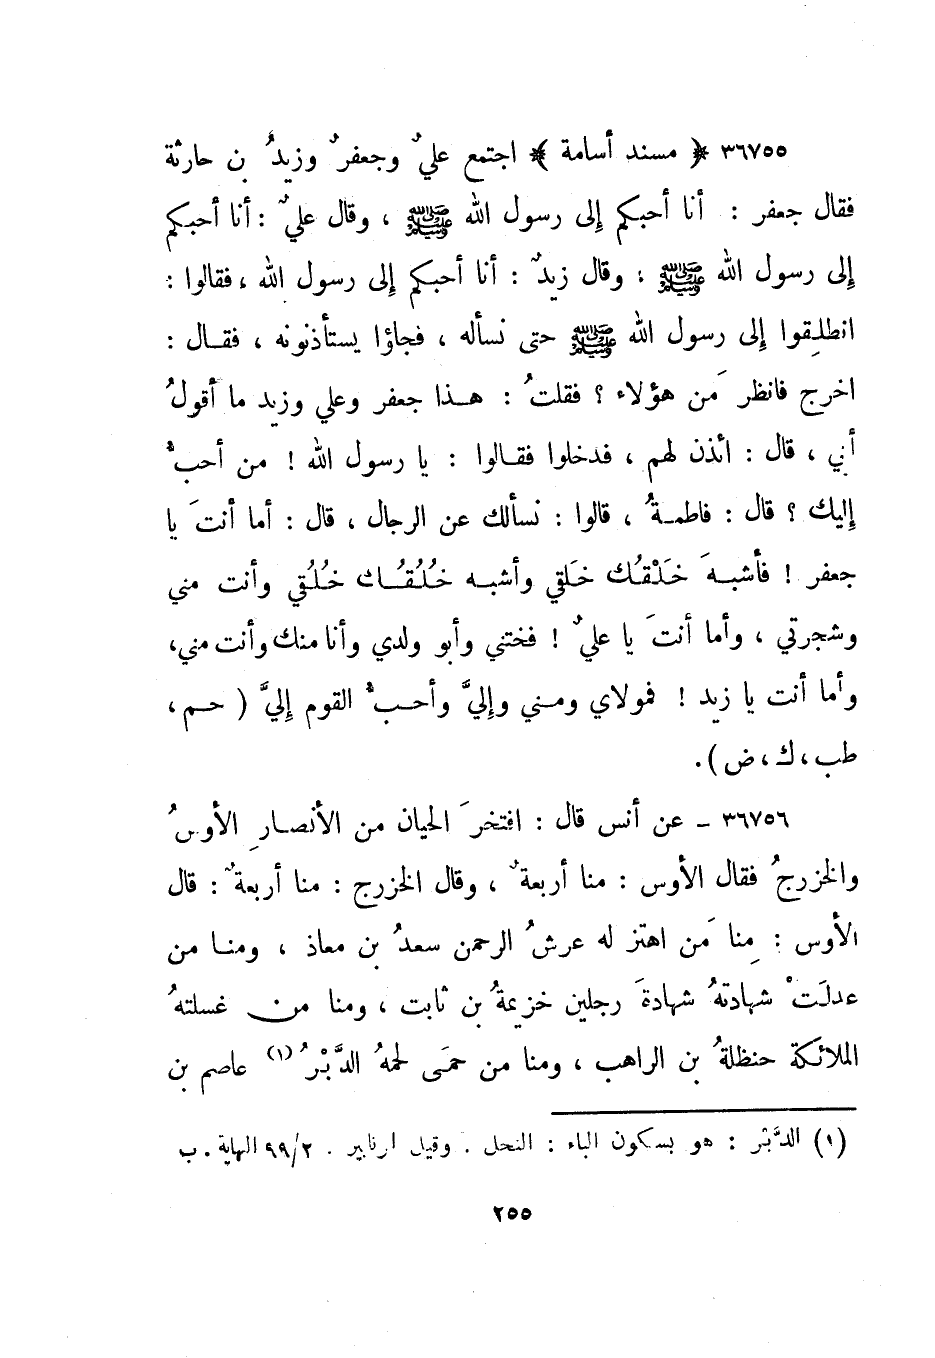 ٣٦٧٥٥ ﴿ مسند أسامة ﴾ اجتمع عليٌ وجعفرٌ وزيدُ بن حارثة
فقال جعفر : أنا أحبكم إلى رسول الله ﷺ ، وقال عليٌ : أنا أحبكم
إلى رسول الله ﷺ ، وقال زيدٌ : أنا أحبكم إلى رسول الله ، فقالوا :
انطلِقوا إلى رسول الله ﷺ حتى نسأله ، فجاؤا يستأذنونه ، فقال :
اخرج فانظر مَن هؤلاء ؟ فقلتُ : هذا جعفر وعلي وزيد ما أقولُ
أبي ، قال : ائذن لهم ، فدخلوا فقالوا : يا رسول الله ! من أحبُّ
إليك ؟ قال : فاطمةُ ، قالوا : نسألك عن الرجال ، قال : أما أنتَ يا
جعفر ! فأشبهَ خَلْقُك خَلقي وأشبه خُلُقُك خُلُقي وأنت مني
وشجرتي ، وأما أنتَ يا عليُ ! فختني وأبو ولدي وأنا منك وأنت مني،
وأما أنت يا زيد ! فمولاي ومني وإليَّ وأحبُّ القوم إليَّ ( حم ،
طب ، ك ، ض ) .
٣٦٧٥٦ - عن أنس قال : افتخرَ الحيان من الأنصارِ الأوسُ
والخزرجُ فقال الأوس : منا أربعةٌ ، وقال الخزرج : منا أربعةٌ : قال
الأوس : مِنا مَن اهتز له عرشُ الرحمن سعدُ بن معاذ ، ومنا من
عدلَتْ شهادتهُ شهادةَ رجلين خزيمةُ بن ثابت ، ومنا من غسلتهُ
الملائكة حنظلةُ بن الراهب ، ومنا من حمَى لحمهُ الدَّبْرُ (١) عاصم بن
(١) الدَّبْر : هو بسكون الباء : النحل . وقيل الزنابير . ٩٩/٢ النهاية . ب
٢٥٥